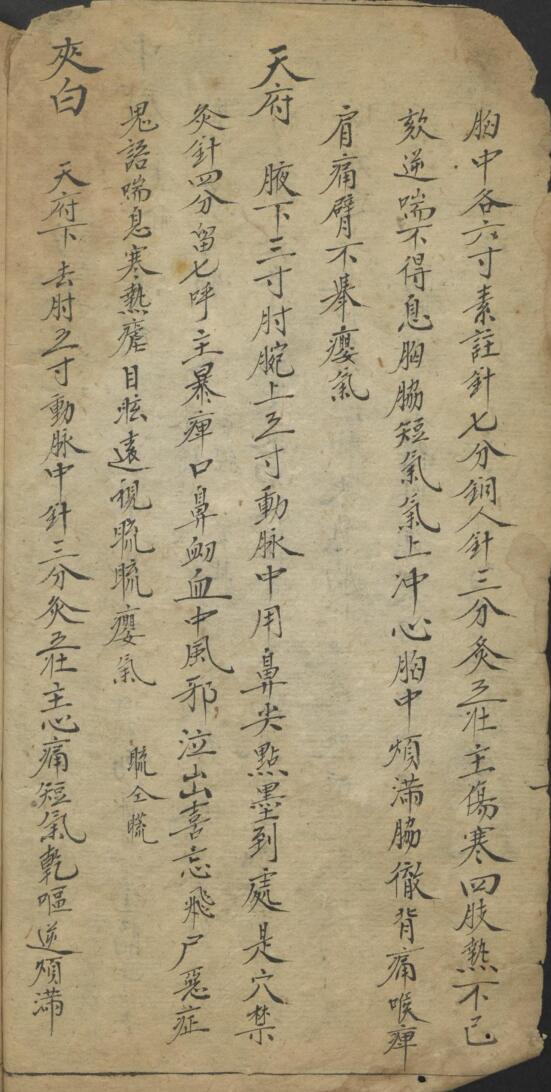 胸中各六寸素註針七分銅人針三分灸五壯主傷寒四肢熱不已
欬逆喘不得息胸脇短氣氣上冲心胸中煩滿脇徹背痛喉痺
肩痛臂不舉癭氣
天府 腋下三寸肘腕上五寸動脉中用鼻尖點墨到處是穴禁
灸針四分留七呼主暴痺口鼻衂血中風邪泣出喜忘飛尸惡症
鬼語喘息寒熱瘧目眩遠視䀮䀮癭氣 䀮仝𥇀
夾白 天府下去肘五寸動脉中針三分灸五壯主心痛短氣乾嘔逆煩滿